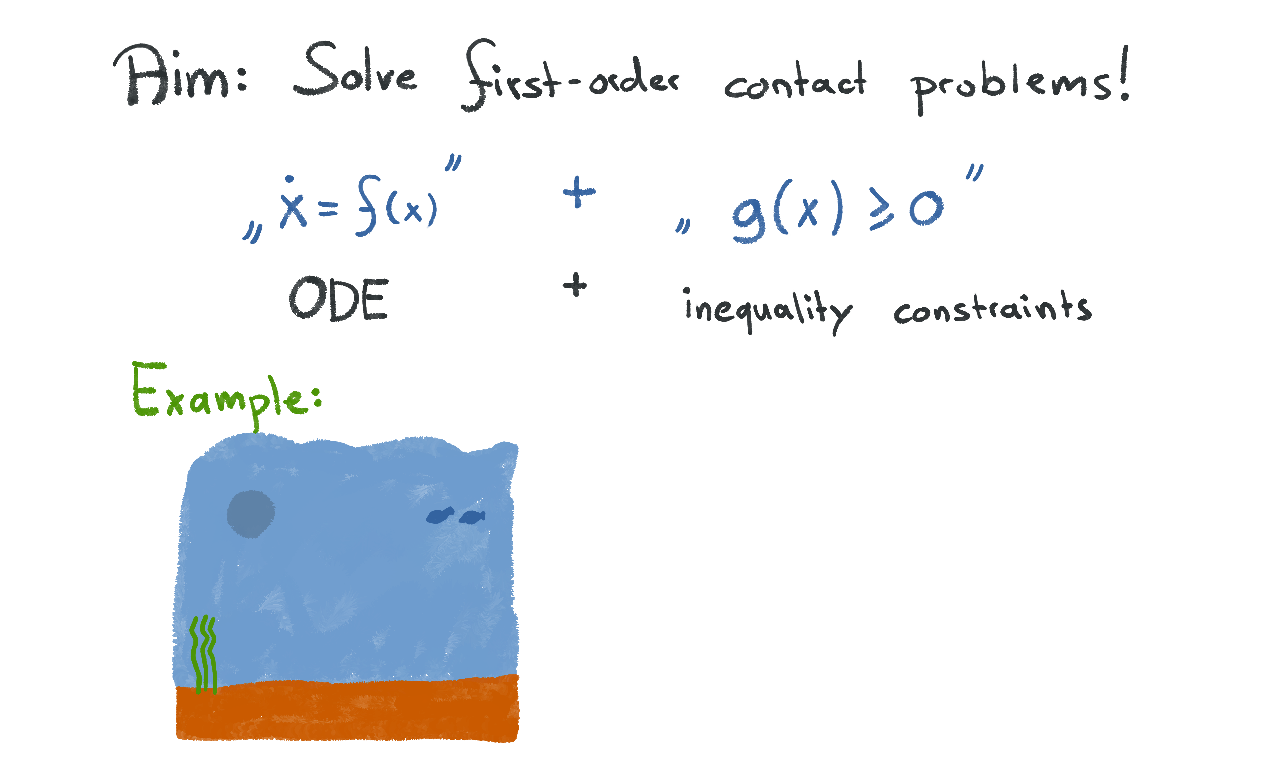 Aim: Solve first-order contact problems!
„ ẋ = f(x) ” + „ g(x) ≥ 0 ”
ODE + inequality constraints
Example: